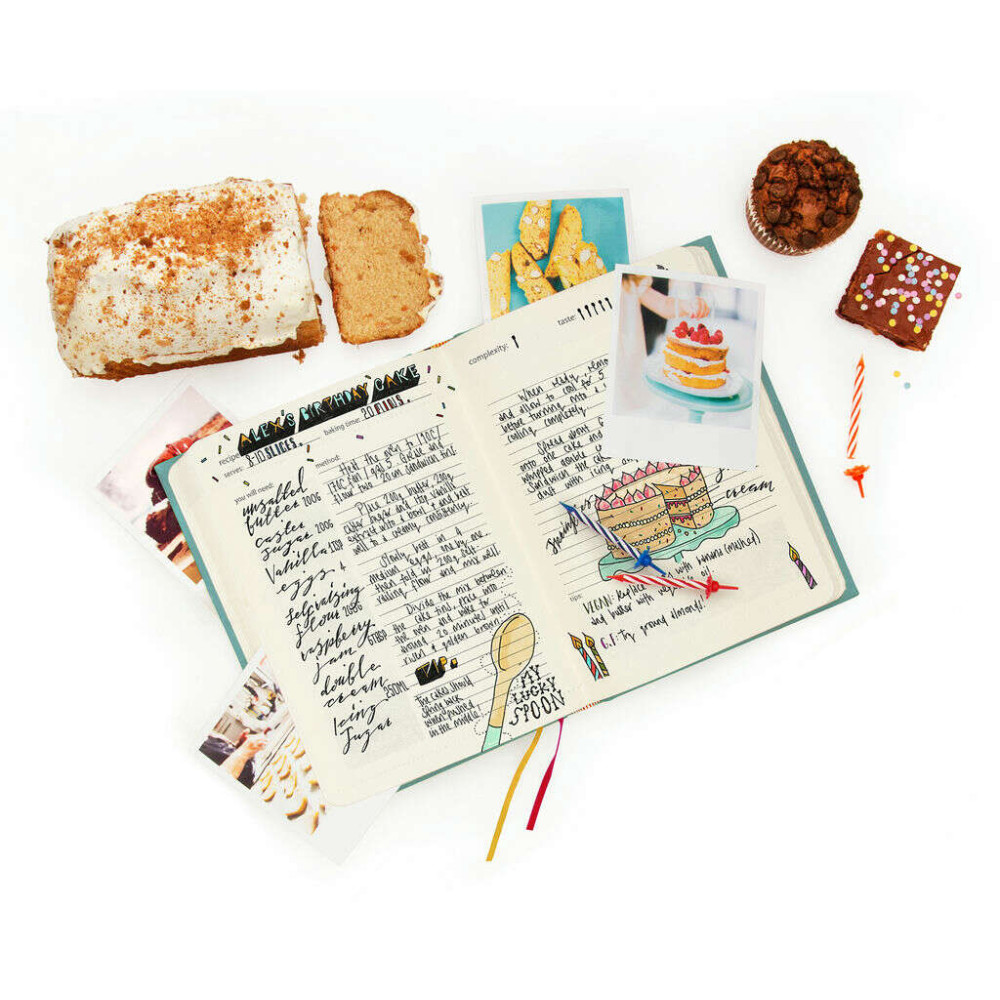 recipe: ALEX'S BIRTHDAY CAKE
serves: 8-10 SLICES. baking time: 20 MINS.
you will need:
unsalted
butter 200G
caster
sugar 200G
Vanilla 1TSP
eggs 4
Self raising
flour 200G
raspberry
jam 6TBSP
double
cream 250ML
Icing
Sugar
method:
Heat the oven to 190C/
170C fan / gas 5. Grease and
flour two 20cm sandwich tins.
Place 200g butter, 200g
caster sugar and 1tsp vanilla
extract into a bowl, and beat
well to a creamy consistency.
Slowly beat in 4
medium eggs, one by one,
then fold in 200g self-
raising flour and mix well.
Divide the mix between
the cake tins, place into
the oven and bake for
around 20 minutes until
risen & golden brown.
TIP:
The cakes should
spring back
when pushed
in the middle.
MY
LUCKY
SPOON
complexity:
taste:
When ready, remo
and allow to cool for 5
before turning onto a
cooling completely.
Spread about 6
onto one cake and
whipped double c
dust with icing
cream
tips:
VEGAN: Replace with banana (mashed)
and butter with oil
G.F: Try ground almonds!